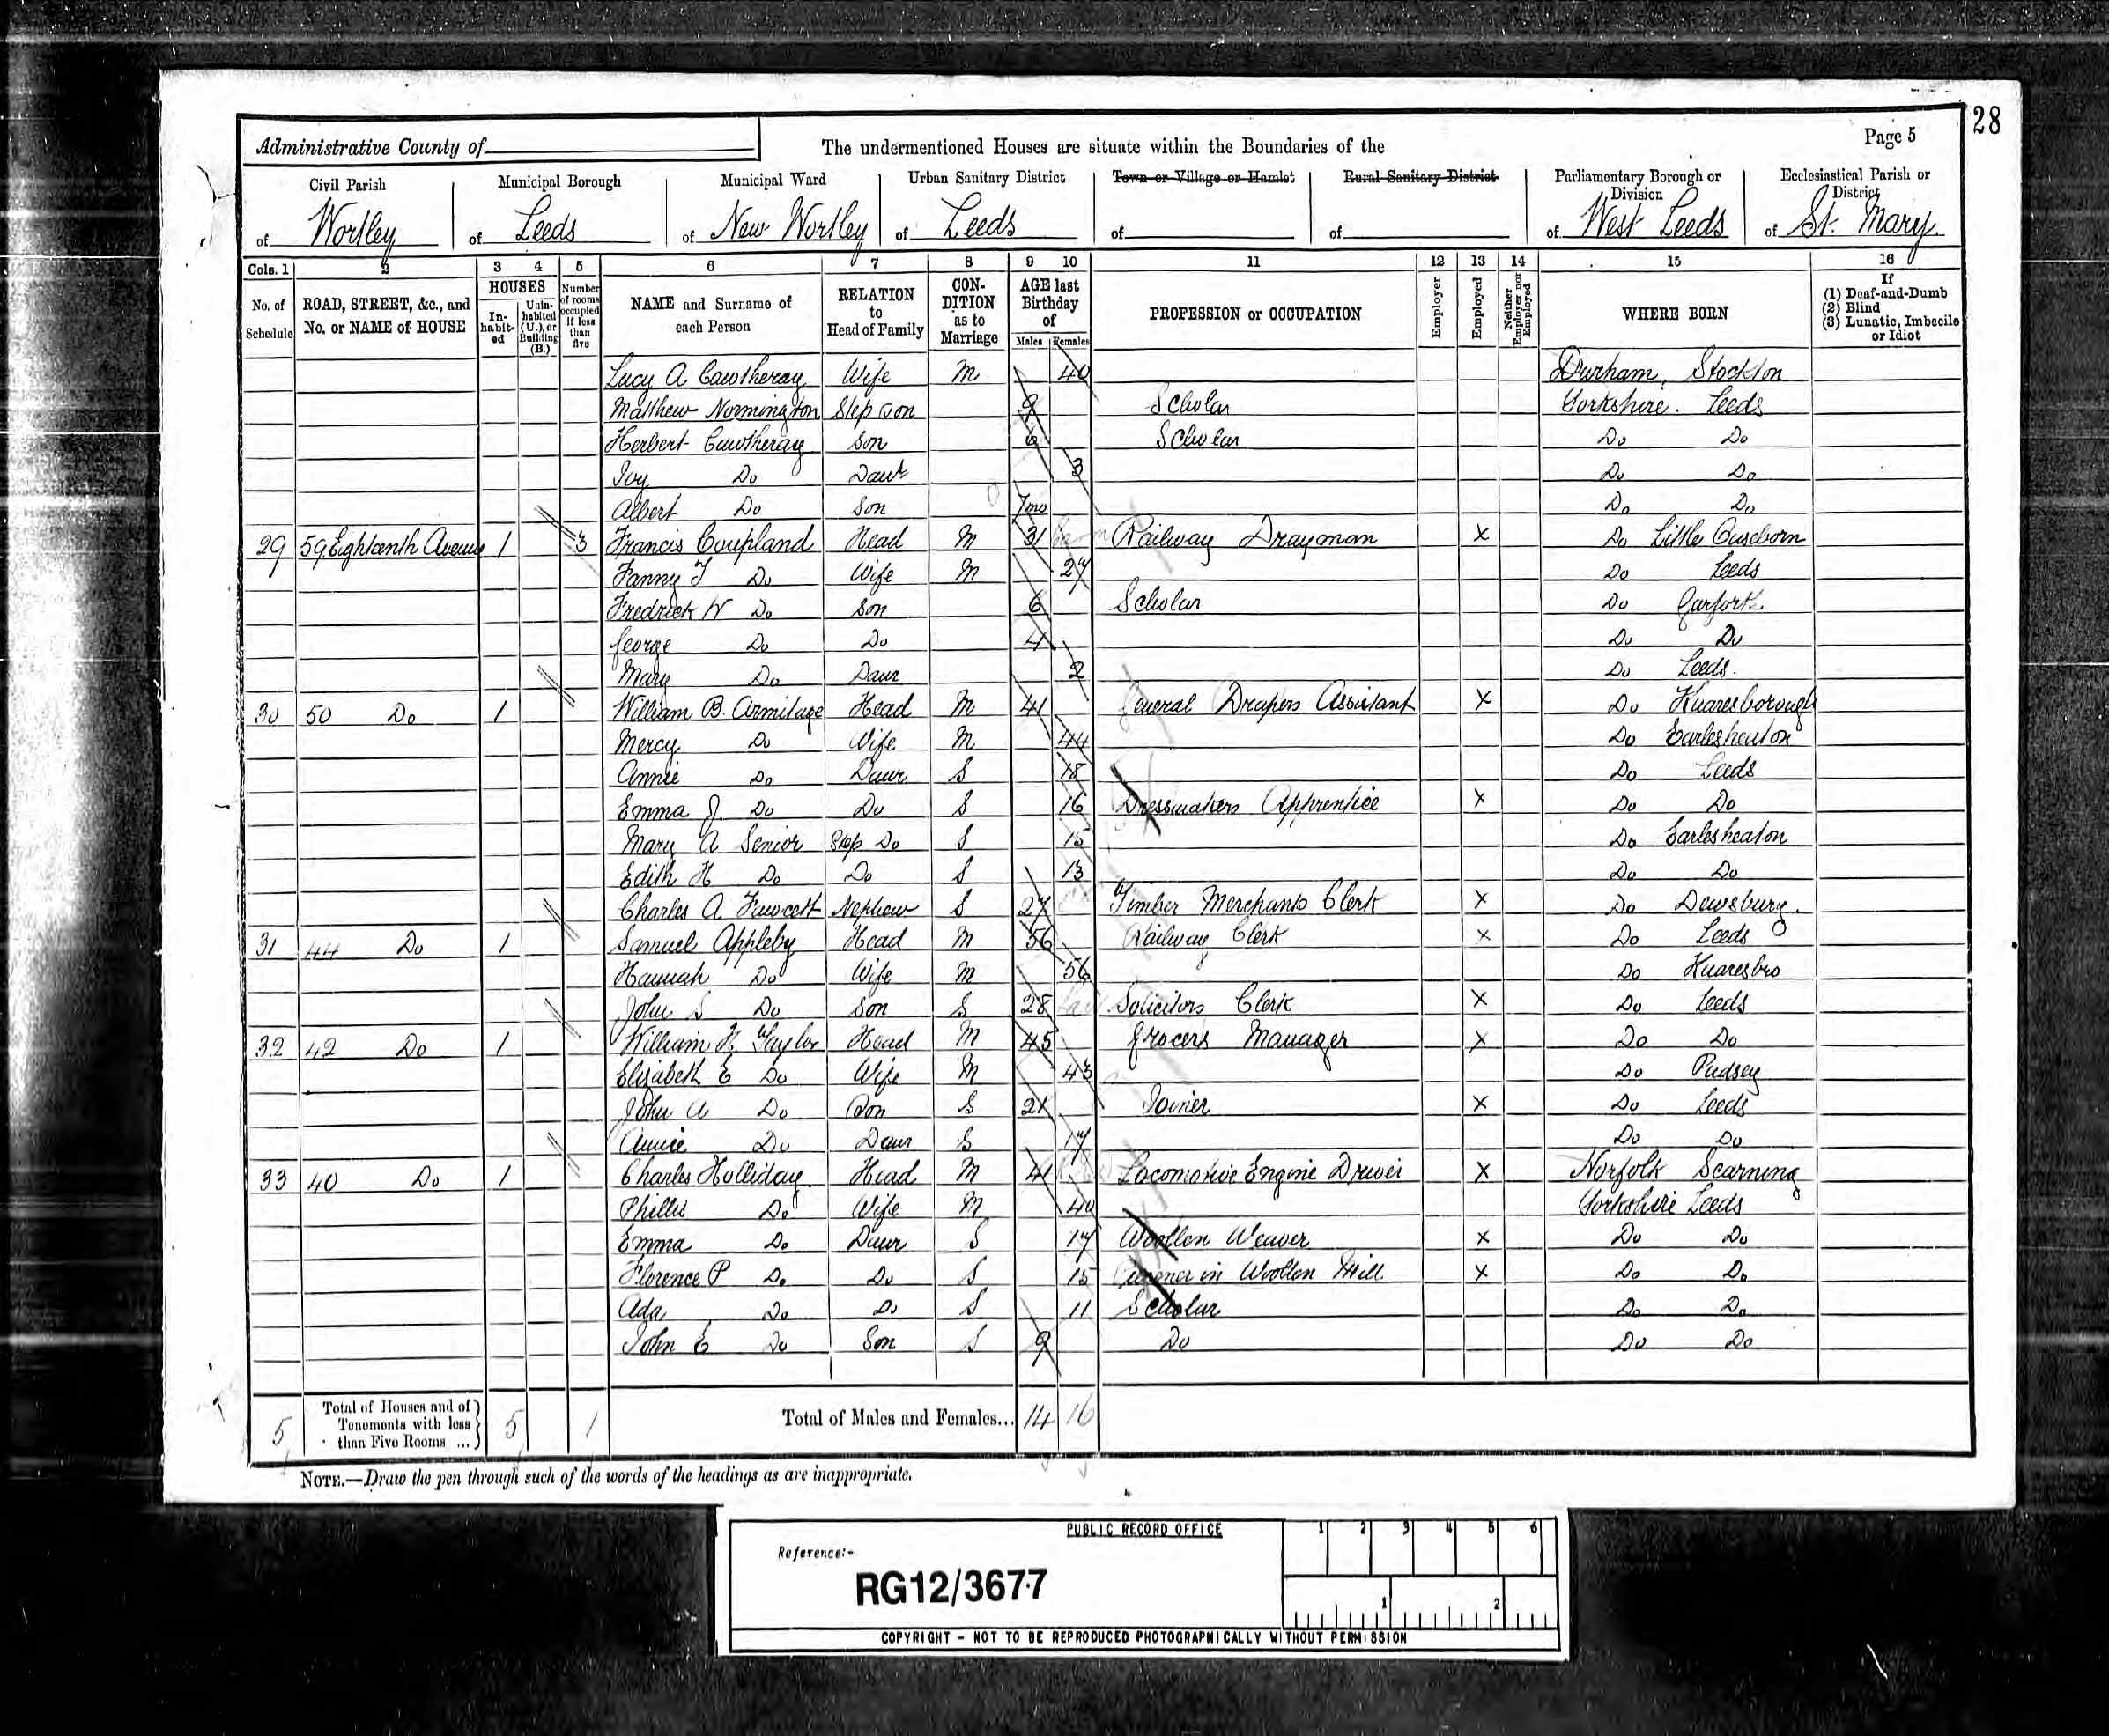 28
Administrative County of
The undermentioned Houses are situate within the Boundaries of the
Page 5
Civil Parish of Wortley
Municipal Borough of Leeds
Municipal Ward of New Wortley
Urban Sanitary District of Leeds
Town or Village or Hamlet of
Rural Sanitary District of
Parliamentary Borough or Division of West Leeds
Ecclesiastical Parish or District of St. Mary.
Cols. 1 2 3 4 5 6 7 8 9 10 11 12 13 14 15 16
No. of Schedule
ROAD, STREET, &c., and No. or NAME of HOUSE
HOUSES
In-habit-ed
Unin-habited (U.), or Building (B.)
Number of rooms occupied if less than five
NAME and Surname of each Person
RELATION to Head of Family
CON-DITION as to Marriage
AGE last Birthday of
Males Females
PROFESSION or OCCUPATION
Employer
Employed
Neither Employer nor Employed
WHERE BORN
If
(1) Deaf-and-Dumb
(2) Blind
(3) Lunatic, Imbecile or Idiot
Lucy A Cawtheray Wife M 40 Durham, Stockton
Matthew Normington Step son 9 Scholar Yorkshire. Leeds
Herbert Cawtheray Son 6 Scholar Do Do
Ivy Do Daur 3 Do Do
Albert Do Son 7mo Do Do
29 59 Eighteenth Avenue 1 3 Francis Coupland Head M 31 Railway Drayman X Do Little Ouseborn
Fanny J Do Wife M 27 Do Leeds
Fredrick W Do Son 6 Scholar Do Garforth.
George Do Do 4 Do Do
Mary Do Daur 2 Do Leeds.
30 50 Do 1 William B. Armitage Head M 41 General Drapers Assistant X Do Knaresborough
Mercy Do Wife M 44 Do Earlesheaton
Annie Do Daur S 18 Do Leeds
Emma J. Do Do S 16 Dressmakers Apprentice X Do Do
Mary A Senior Step Do S 15 Do Earlesheaton
Edith H Do Do S 13 Do Do
Charles A Fawcett Nephew S 27 Timber Merchants Clerk X Do Dewsbury.
31 44 Do 1 Samuel Appleby Head M 56 Railway Clerk X Do Leeds
Hannah Do Wife M 56 Do Knaresbro
John S. Do Son S 28 Solicitors Clerk X Do Leeds
32 42 Do 1 William H. Taylor Head M 45 Grocers Manager X Do Do
Elizabeth E Do Wife M 43 Do Pudsey
John A Do Son S 21 Joiner X Do Leeds
Annie Do Daur S 17 Do Do
33 40 Do 1 Charles Holliday Head M 41 Locomotive Engine Driver X Norfolk Scarning
Phillis Do Wife M 40 Yorkshire Leeds
Emma Do Daur S 17 Woollen Weaver X Do Do
Florence P Do Do S 15 in Woollen Mill X Do Do
Ada Do Do S 11 Scholar Do Do
John E Do Son S 9 Do Do Do
5 Total of Houses and of Tenements with less than Five Rooms ... 5 1 Total of Males and Females... 14 16
NOTE.—Draw the pen through such of the words of the headings as are inappropriate.
PUBLIC RECORD OFFICE
1 2 3 4 5 6
Reference:-
RG12/3677
1 2
COPYRIGHT - NOT TO BE REPRODUCED PHOTOGRAPHICALLY WITHOUT PERMISSION